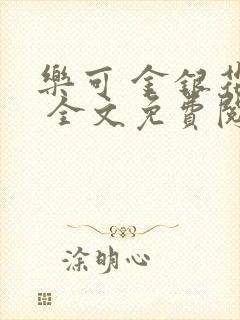 樂可 金銀花
全文免費閱
涂明心